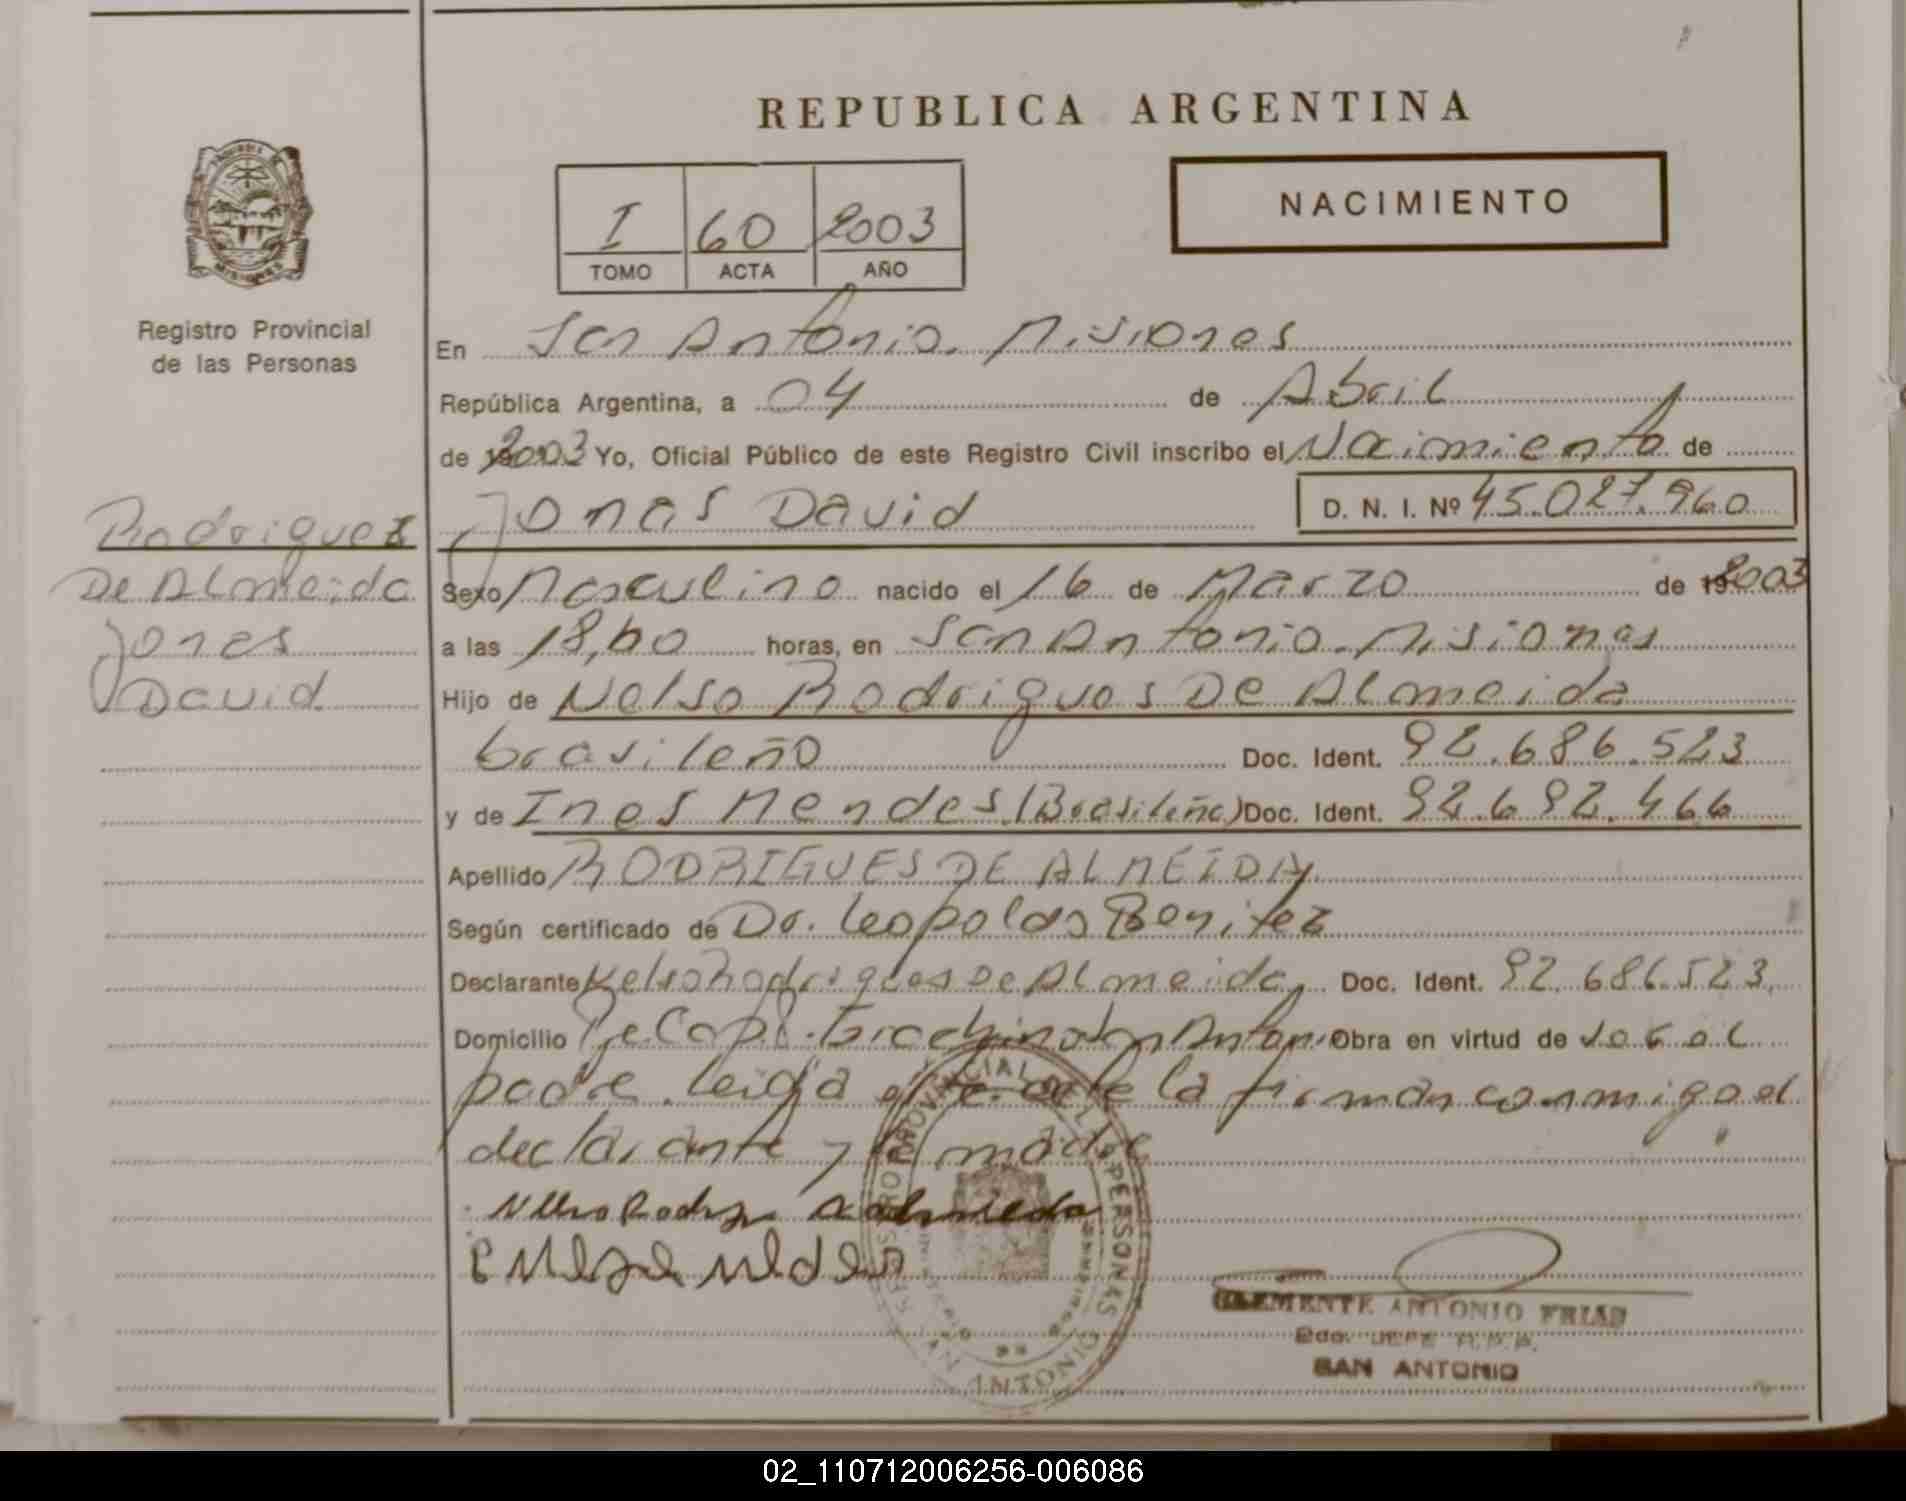 REPUBLICA ARGENTINA
I 60 2003
TOMO ACTA AÑO
NACIMIENTO
Registro Provincial
de las Personas
En San Antonio. Misiones
República Argentina, a 04 de Abril
de 2003 Yo, Oficial Público de este Registro Civil inscribo el Nacimiento de
Jonas David
D. N. I. Nº 45.027.960
Rodrigues
De Almeida
Jonas
David
Sexo Masculino nacido el 16 de Marzo de 2003
a las 18,00 horas, en San Antonio. Misiones
Hijo de Nelso Rodrigues De Almeida
brasileño Doc. Ident. 92.686.523
y de Ines Mendes (Brasileña) Doc. Ident. 92.692.466
Apellido RODRIGUES DE ALMEIDA
Según certificado de Dr. Leopoldo Benitez
Declarante Nelso Rodrigues De Almeida Doc. Ident. 92.686.523
Domicilio San Anton. Obra en virtud de ser el
padre. Leida el acta la firman conmigo el
declarante y la madre
REGISTRO PROVINCIAL DE LAS PERSONAS
SAN ANTONIO
CLEMENTE ANTONIO FRIAS
JEFE R.P.P.
SAN ANTONIO
02_110712006256-006086